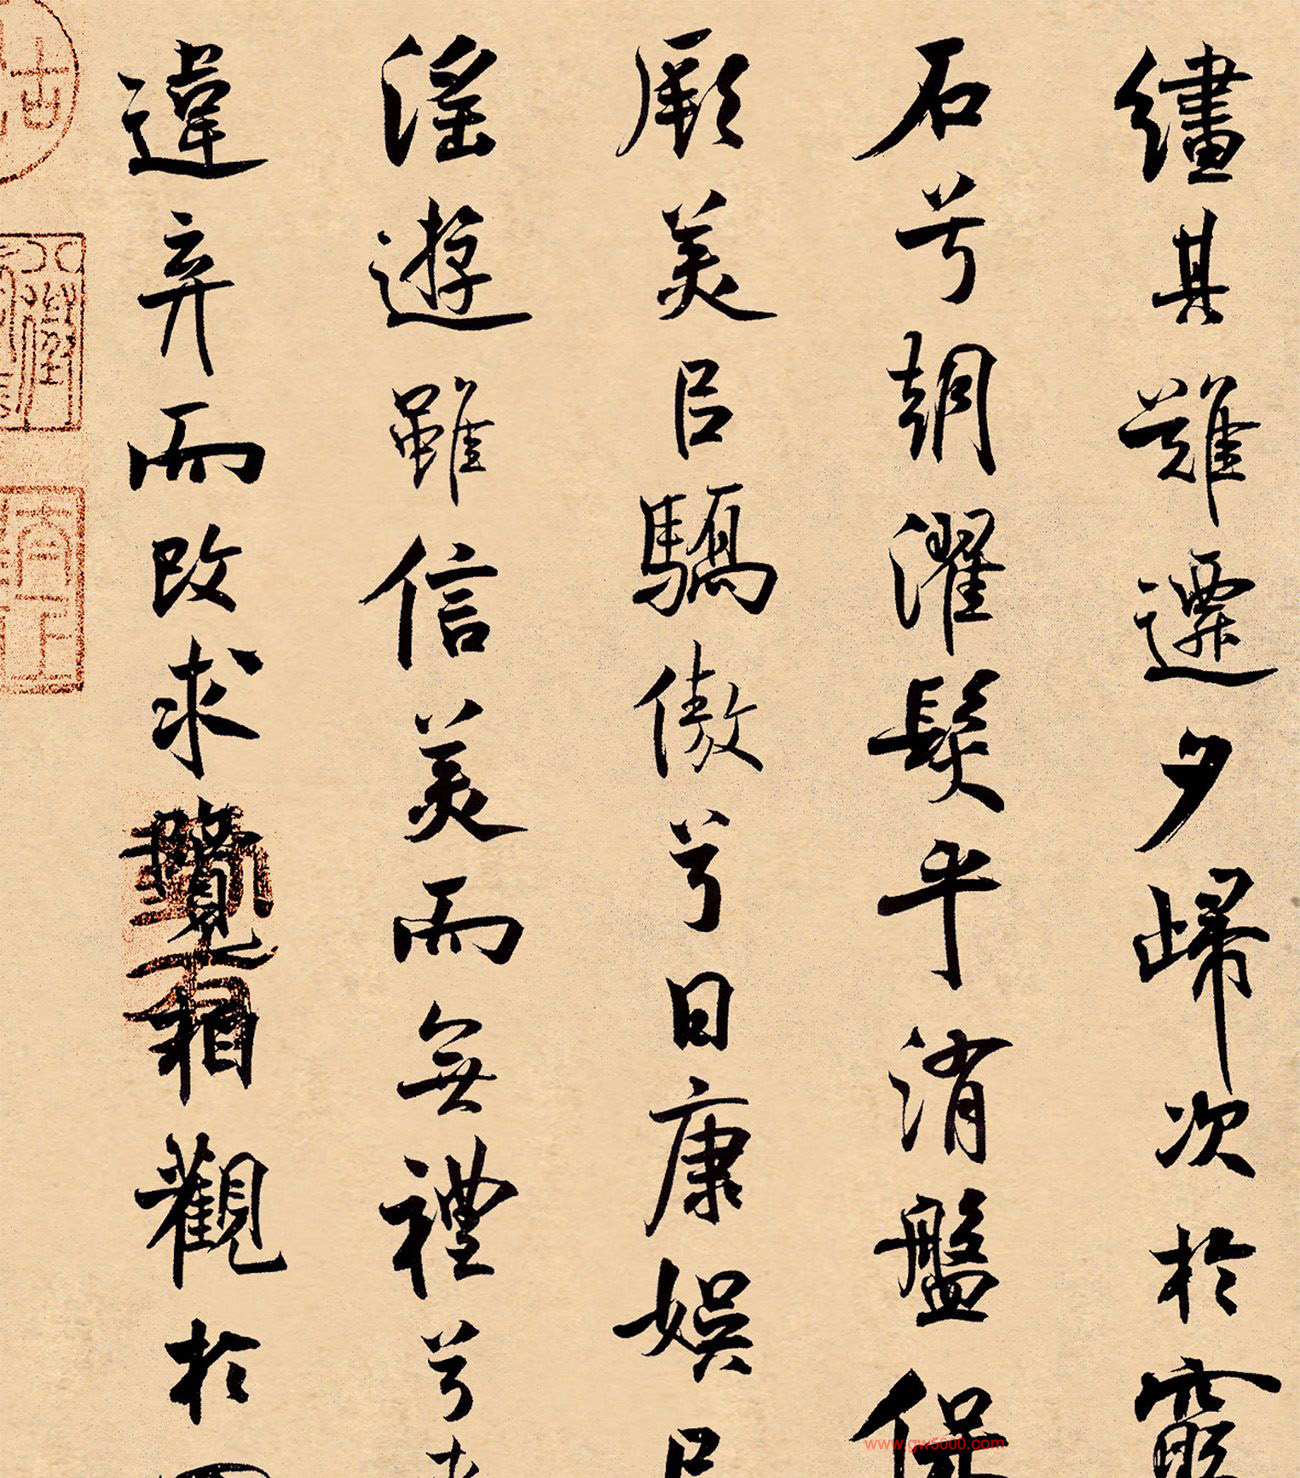 繣其難遷夕歸次於窮
石兮朝濯髮乎洧盤保
厥美㠯驕傲兮日康娛㠯
淫遊雖信美而無禮兮來
違弃而改求覽相觀於四
www.gw5000.com